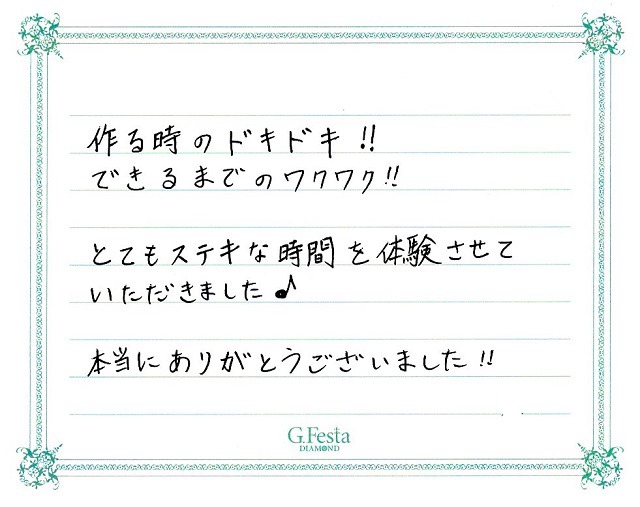 作る時のドキドキ!!
できるまでのワクワク!!
とてもステキな時間を体験させて
いただきました♪
本当にありがとうございました!!
G.Festa
DIAMOND